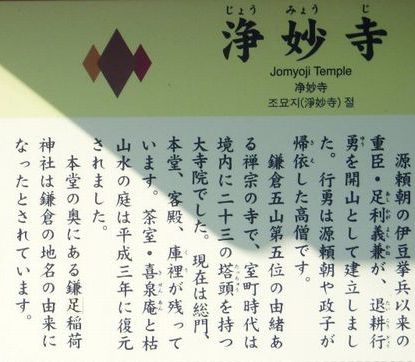 じょう みょう じ
浄妙寺
Jomyoji Temple
净妙寺
조묘지(淨妙寺) 절
源頼朝の伊豆挙兵以来の
重臣・足利義兼が、退耕行
勇を開山として建立しまし
た。行勇は源頼朝や政子が
帰依した高僧です。
鎌倉五山第五位の由緒あ
る禅宗の寺で、室町時代は
境内に二十三の塔頭を持つ
大寺院でした。現在は総門、
本堂、客殿、庫裡が残って
います。茶室・喜泉庵と枯
山水の庭は平成三年に復元
されました。
本堂の奥にある鎌足稲荷
神社は鎌倉の地名の由来に
なったとされています。